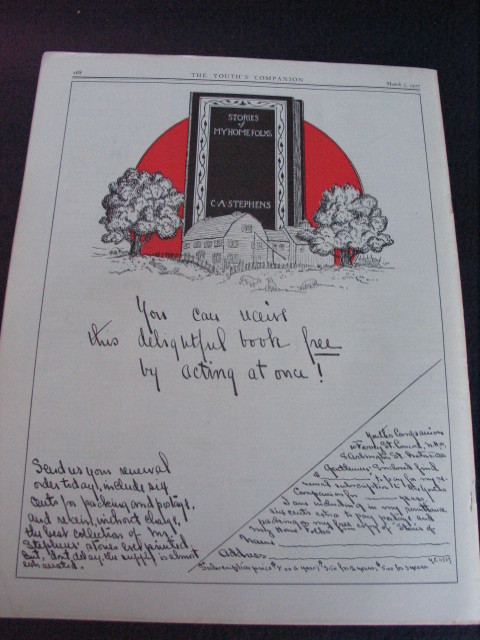 168 THE YOUTH'S COMPANION March 3, 1927
STORIES
of
MY HOME FOLKS
C.A. STEPHENS
You can receive
this delightful book free
by acting at once!
Send us your renewal
order today, include six
cents for packing and postage,
and receive, without charge,
the best collection of Mr.
Stephens' stories ever printed.
But, don't delay, the supply is almost
exhausted.
Youth's Companion
Concord, N.H., or
St. Boston, Mass.
Gentlemen: Enclosed find
$ to pay for my re-
newal subscription to The Youth's
Companion for years.
I am including in my remittance
six cents extra to pay postage and
packing on my free copy of Stories of
My Home Folks
Name
Address
Subscription price $2.00 a year,